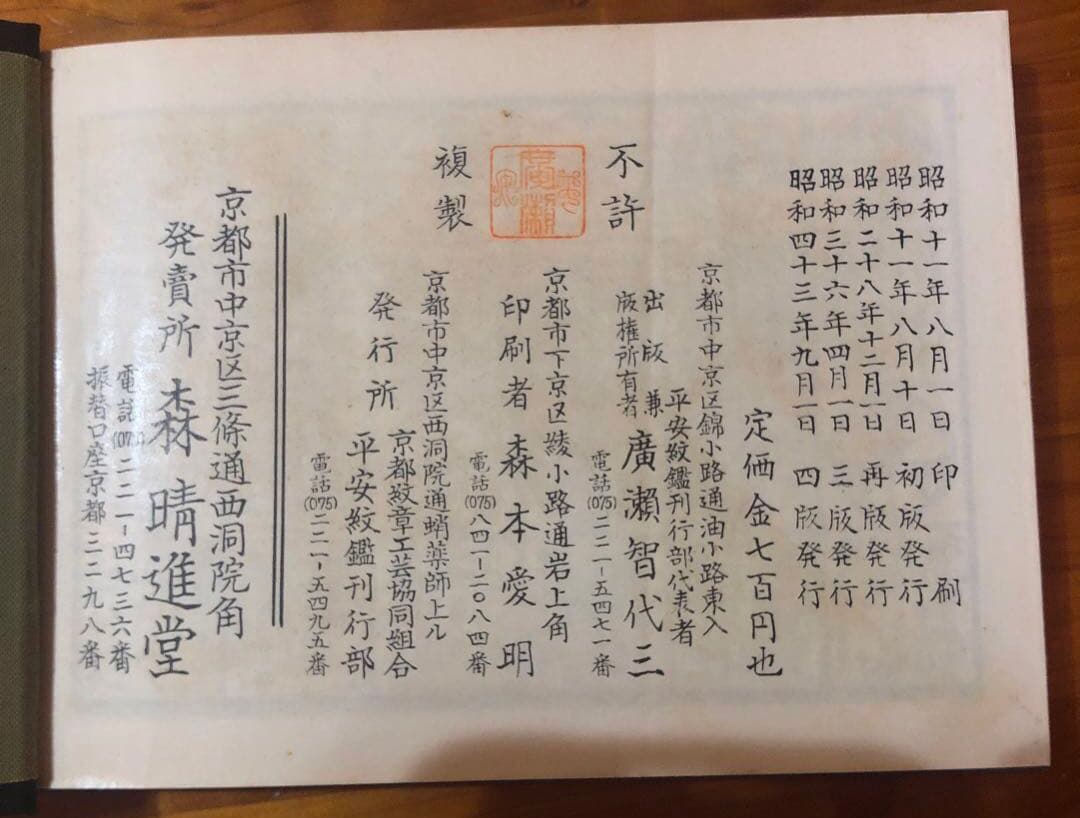 昭和十一年八月一日 印刷
昭和十一年八月十日 初版発行
昭和二十八年十二月一日 再版発行
昭和三十六年四月一日 三版発行
昭和四十三年九月一日 四版発行
定価金七百円也
京都市中京区錦小路通油小路東入
平安紋鑑刊行部代表者
出版兼
版権所有者
廣瀬智代三
電話(075)二二一-五四七一番
不許
複製
京都市下京区綾小路通岩上角
印刷者 森本愛明
電話(075)八四一-二〇八四番
京都市中京区西洞院通蛸薬師上ル
発行所
京都紋章工芸協同組合
平安紋鑑刊行部
電話(075)二二一-五四九五番
京都市中京区三條通西洞院角
発賣所 森晴進堂
電話(075)二二一-四七三六番
振替口座京都二二九八番